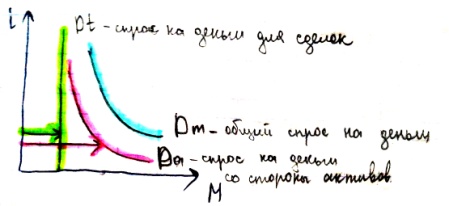 i
Dt - спрос на деньги для сделок
Dm - общий спрос на деньги
Da - спрос на деньги
со стороны активов
M